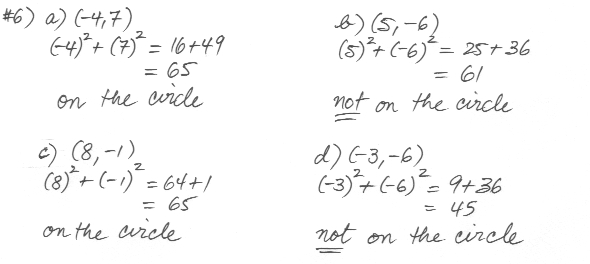 #6) a) (-4,7)
(-4)² + (7)² = 16+49
= 65
on the circle
b) (5,-6)
(5)² + (-6)² = 25+36
= 61
not on the circle
c) (8,-1)
(8)² + (-1)² = 64+1
= 65
on the circle
d) (-3,-6)
(-3)² + (-6)² = 9+36
= 45
not on the circle